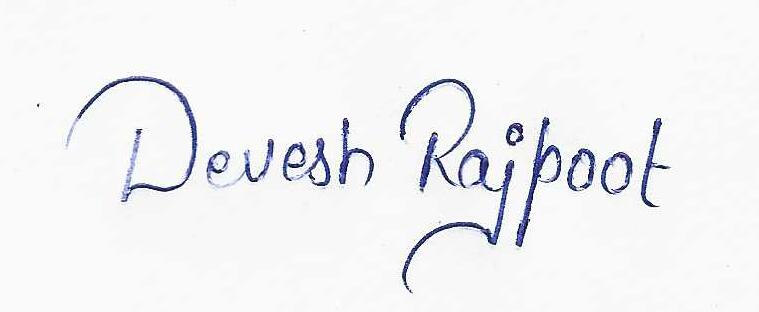 Devesh Rajpoot